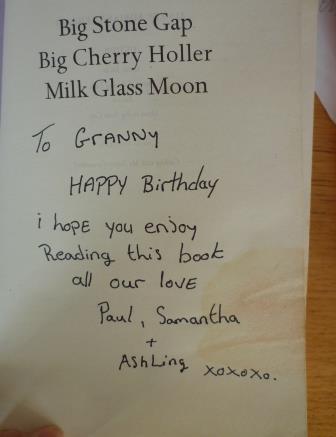 Big Stone Gap
Big Cherry Holler
Milk Glass Moon
To GRANNY
HAPPY Birthday
i hope you enjoy
Reading this book
all our love
Paul, Samantha
+
AshLing xoxoxo.